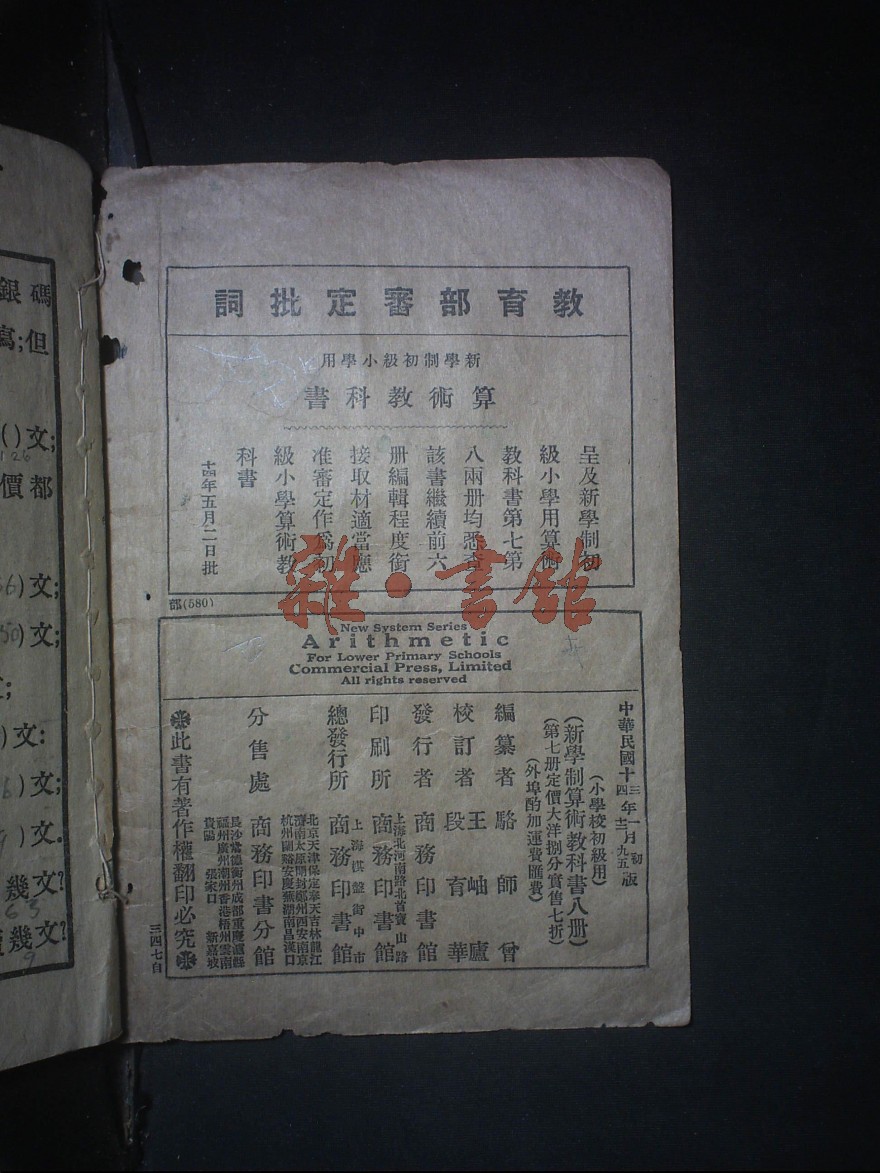 教育部審定批詞
新學制初級小學用
算術教科書
呈及新學制初
級小學用算術
教科書第七第
八兩册均悉查
該書繼續前六
册編輯程度銜
接取材適當應
准審定作爲初
級小學算術教
科書
十四年五月二日批
部(580)
雜·書館
New System Series
Arithmetic
For Lower Primary Schools
Commercial Press, Limited
All rights reserved
中華民國十三年一月初版
十四 十二 九五
(小學校初級用)
(新學制算術教科書八册)
(第七册定價大洋捌分實售七折)
(外埠酌加運費匯費)
編纂者 駱師曾
王岫廬
校訂者 段育華
發行者 商務印書館
上海北河南路北首寶山路
印刷所 商務印書館
上海棋盤街中市
總發行所 商務印書館
北京天津保定奉天吉林龍江
濟南太原開封鄭州西安南京
杭州蘭谿安慶蕪湖南昌漢口
分售處 商務印書分館
長沙常德衡州成都重慶瀘縣
福州廣州潮州香港梧州雲南
貴陽 張家口 新嘉坡
此書有著作權翻印必究
三四七自
銀碼
寫;但
()文;
126
價都
56)文;
50)文;
)文:
6)文;
9)文.
幾文?
63
幾文?
9